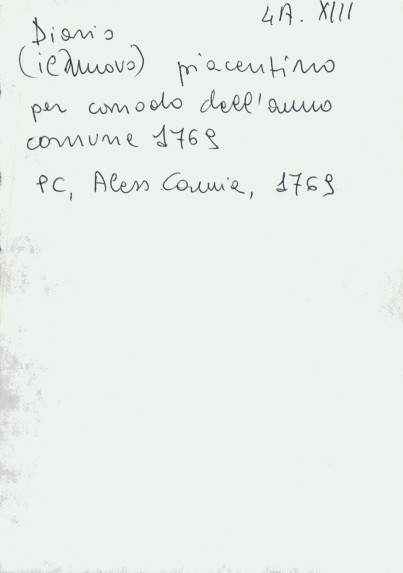 4A. XIII
Diario
(il nuovo) piacentino
per comodo dell'anno
comune 1769
PC, Aless. 1769